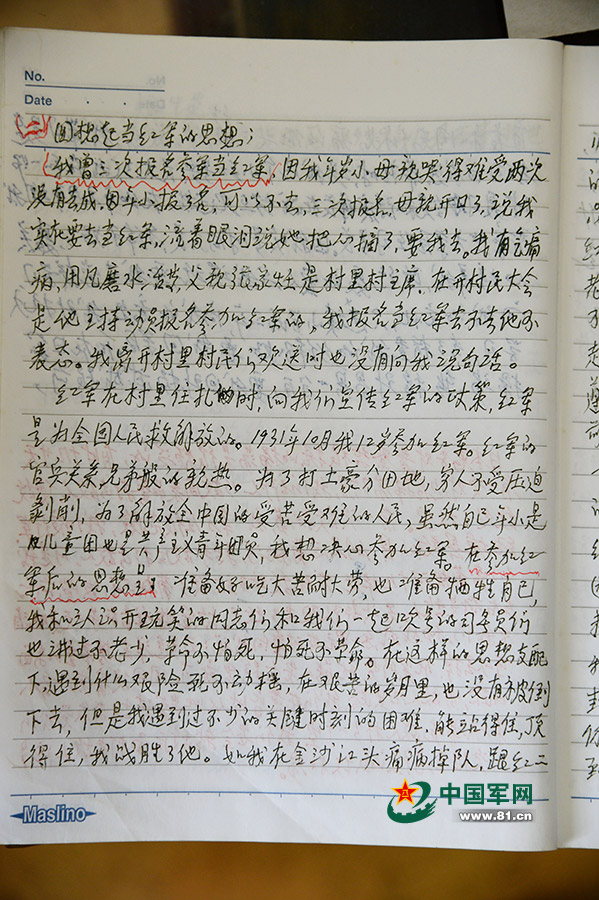 No.
Date
(二)回想起当红军的思想;
(我曾三次报名参军当红军,因我年岁小母亲哭得难受两次
没有去成,因年小报了名,可以不去,三次报名,母亲开口了,说我
实在要去当红军,流着眼泪说她把心摘了,要我去。我有气痛
病,用凡磨水治 父親張家灶是村里村主席,在开村民大会
是他主持动员报名参加红军的,我报名当红军去不去他不
表态。我离开村里村民们欢送时也没有向我说句话。
红军在村里住扎时,向我们宣传红军的政策,红军
是为全国人民救解放的。1931年10月我12岁参加红军。红军的
官兵关系兄弟般的親热。为了打土豪分田地,穷人不受压迫
剥削,为了解放全中国的受苦受难的人民,虽然自己年小是
儿童团也是共产主义青年团员,我想决心参加红军。在参加红
军后的思想里 准备好吃大苦耐大劳,也准备牺牲自己,
我和认识开玩笑的同志们和我们一起吹号的司号员们
也讲过不老少,革命不怕死,怕死不革命。在这样的思想支配
下,遇到什么艰险死不动摇,在艰苦的岁月里,也没有被倒
下去,但是我遇到过不少的关键时刻的困难,能站得住,顶
得住,我战胜了他。如我在金沙江头痛病掉队,跟红二
Maslino
中国军网
www.81.cn